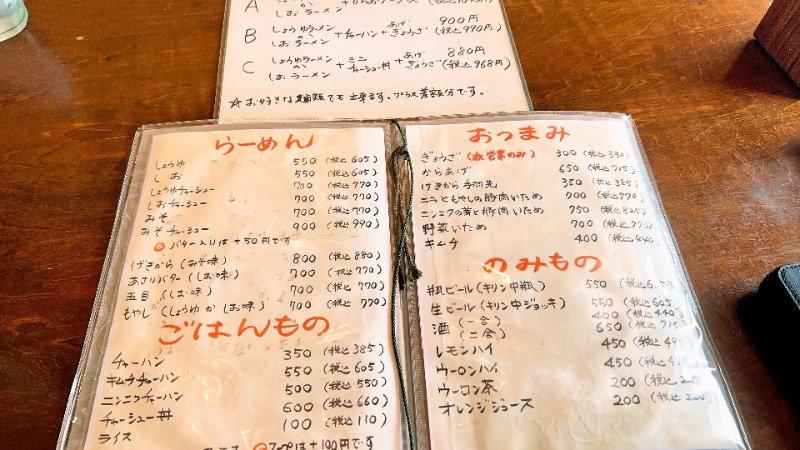 A
しおラーメン
B しょうゆラーメン か しおラーメン + チャーハン + あげぎょうざ 900円 (税込990円)
C しょうゆラーメン か しおラーメン + ミニチャーシュー丼 + あげぎょうざ 880円 (税込968円)
☆お好きな麺類でも出来ます。プラス差額分です。
らーめん
しょうゆ 550 (税込605)
しお 550 (税込605)
しょうゆチャーシュー 700 (税込770)
しおチャーシュー 700 (税込770)
みそ 700 (税込770)
みそチャーシュー 900 (税込990)
バター入りは+50円です
げきから(みそ味) 800 (税込880)
あさりバター(しお味) 700 (税込770)
五目(しお味) 700 (税込770)
もやし(しょうゆかしお味) 700 (税込770)
ごはんもの
チャーハン 350 (税込385)
キムチチャーハン 550 (税込605)
ニンニクチャーハン 500 (税込550)
チャーシュー丼 600 (税込660)
ライス 100 (税込110)
は+100円です
おつまみ
ぎょうざ (夜営業のみ) 300 (税込330)
からあげ 650 (税込715)
げきから手羽先 350 (税込385)
ニラともやしの豚肉いため 700 (税込770)
ニンニクの芽と豚肉いため 750 (税込825)
野菜いため 700 (税込770)
キムチ 400 (税込440)
のみもの
瓶ビール(キリン中瓶) 550 (税込605)
生ビール(キリン中ジョッキ) 550 (税込605)
酒 (一合) 400 (税込440)
(二合) 650 (税込715)
レモンハイ 450 (税込495)
ウーロンハイ 450 (税込495)
ウーロン茶 200 (税込220)
オレンジジュース 200 (税込220)